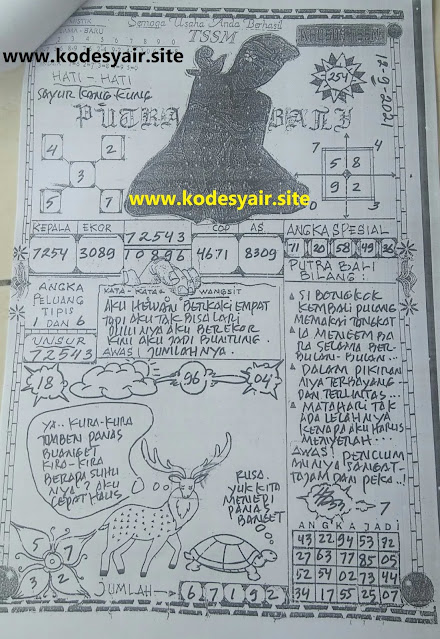 Semoga Usaha Anda Berhasil
TSSM
www.kodesyair.site
HATI-HATI
SAYUR KANG KUNG
254
12-9-2021
PUTRA BALI
4 2
3
5 7
www.kodesyair.site
7 4
5 8
9 2
0 3
KEPALA EKOR 72543 COP AS
7254 3089 10896 4671 8309
ANGKA SPESIAL
71 20 58 49 36
PUTRA BALI
BILANG:
ANGKA
PELUANG
TIPIS
1 DAN 6
UNSUR
72543
KATA-KATA WANGSIT
AKU HEWAN BERKAKI EMPAT
TAPI AKU TAK BISA LARI
DULUNYA AKU BEREKOR
KINI AKU JADI BUNTUNG.
AWAS JUMLAHNYA.
SI BONGKOK
KEMBALI PULANG
MEMAKAI TONGKAT
IA MENGEMBA
RA SELAMA BER-
BULAN-BULAN...
DALAM PIKIRAN
NYA TERBAYANG
DAN TERLINTAS...
MATAHARI TAK
ADA LELAHNYA
KENAPA AKU HARUS
MENYERAH...
AWAS! PENCIUM
ANNYA SANGAT
TAJAM DAN PEKA..!
18 96 04
YA.. KURA-KURA
TUMBEN PANAS
BUANGET
KIRA-KIRA
BERAPA SUHU
NYA? AKU
CEPAT HAUS
RUSA
YUK KITA
MENEPI
PANAS
BANGET
7
5 7
3 2
JUMLAH 67192
ANGKA JADI
43 22 94 53 72
27 63 77 85 05
52 54 02 73 44
34 17 55 25 07